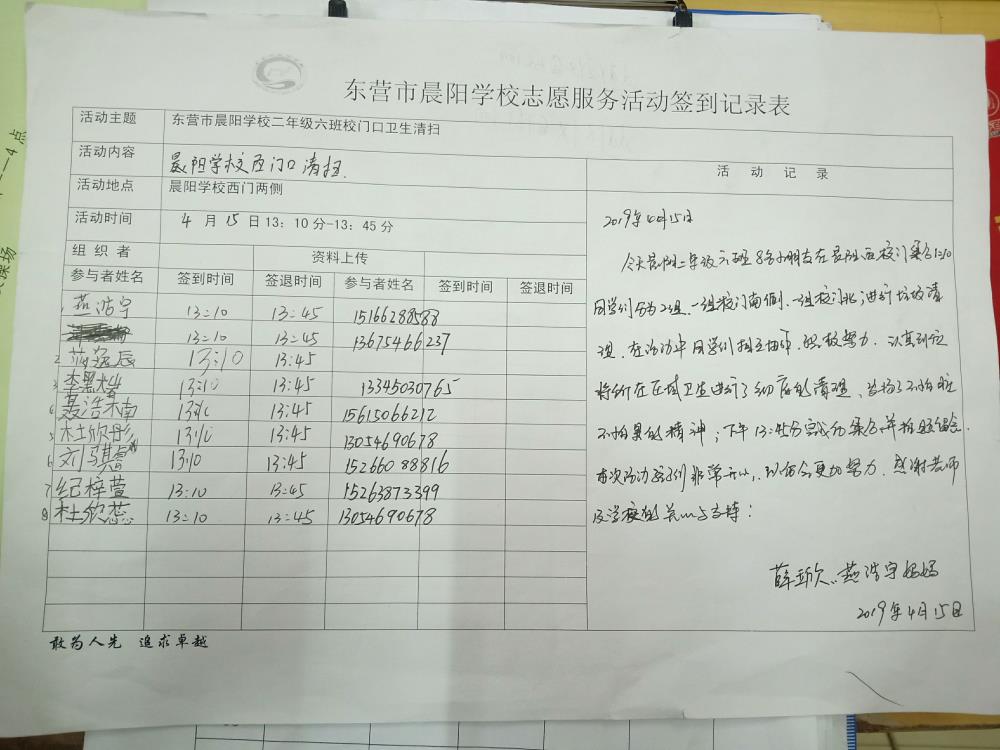 东营市晨阳学校志愿服务活动签到记录表
活动主题 东营市晨阳学校二年级六班校门口卫生清扫
活动内容 晨阳学校西门口清扫.
活动记录
活动地点 晨阳学校西门两侧
活动时间 4月15日13:10分-13:45分
组织者 资料上传
参与者姓名 签到时间 签退时间 参与者姓名 签到时间 签退时间
1. 燕浩宇 13:10 13:45 15166288588
13:10 13:45 13675466237
2 逸辰 13:10 13:45
3 李黑灿 13:10 13:45 13345030765
4 聂浩南 13:10 13:45 15615066212
5 杜欣彤 13:10 13:45 13054690678
6 刘骐 13:10 13:45 15266088816
7 纪梓萱 13:10 13:45 15263873399
8 杜欣蕊 13:10 13:45 13054690678
2019年4月15日
今天晨阳二年级六班8名小朋友在晨阳西校门集合13:10
同学们分为2组.一组校门南侧.一组校门北,进行垃圾清
理.在活动中同学们相互 积极努力.认真到位
将所在区域卫生进行了彻底的清理、发扬了不怕脏
不怕累的精神;下午13:45分完成后集合并拍照留念.
本次活动孩子们非常开心,以后会更加努力.感谢老师
及学校的关心与支持!
薛 燕浩宇妈妈
2019年4月15日
敢为人先 追求卓越
4点
操场